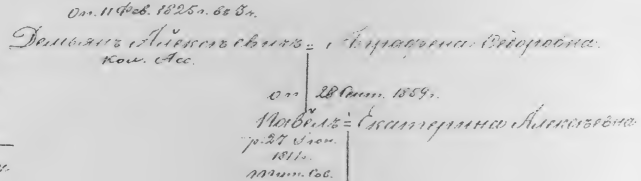 Оп. 11 Фев. 1825 г. въ 3 г.
Демьянъ Алексѣевичъ = Аграфена Ѳедоровна.
кол. Асс.
оп 28 Сент. 1859 г.
Павелъ = Екатерина Алексѣевна
р. 27
1811 г.
Тит. Сов.
г.